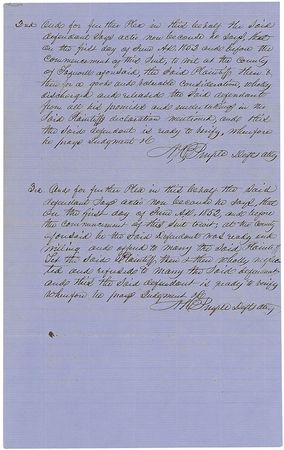 2nd And for further Plea in this behalf the Said
defendant Says actio non because he says, that
on the first day of June AD. 1853 and before the
Commencement of this Suit, to wit at the County
of Tazewell aforesaid, the Said Plaintiff then &
there for a good and valuable Consideration, wholly
discharged and released the Said defendant
from all his promises and undertakings in the
Said Plaintiffs declaration mentioned, and this
the Said defendant is ready to verify, wherefore
he prays Judgment &c
Purple Defts atty
3rd And for further Plea in this behalf the Said
defendant Says actio non because he says, that
On the first day of June AD. 1853, and before
the Commencement of this Suit towit; at the County
aforesaid he the Said defendant was ready and
willing and offered to marry the Said Plaintiff
Yet the Said Plaintiff, then & there wholly neglec
ted and refused to Marry the Said defendant
and this the Said defendant is ready to verify
Wherefore he prays Judgment &c
Purple Defts atty